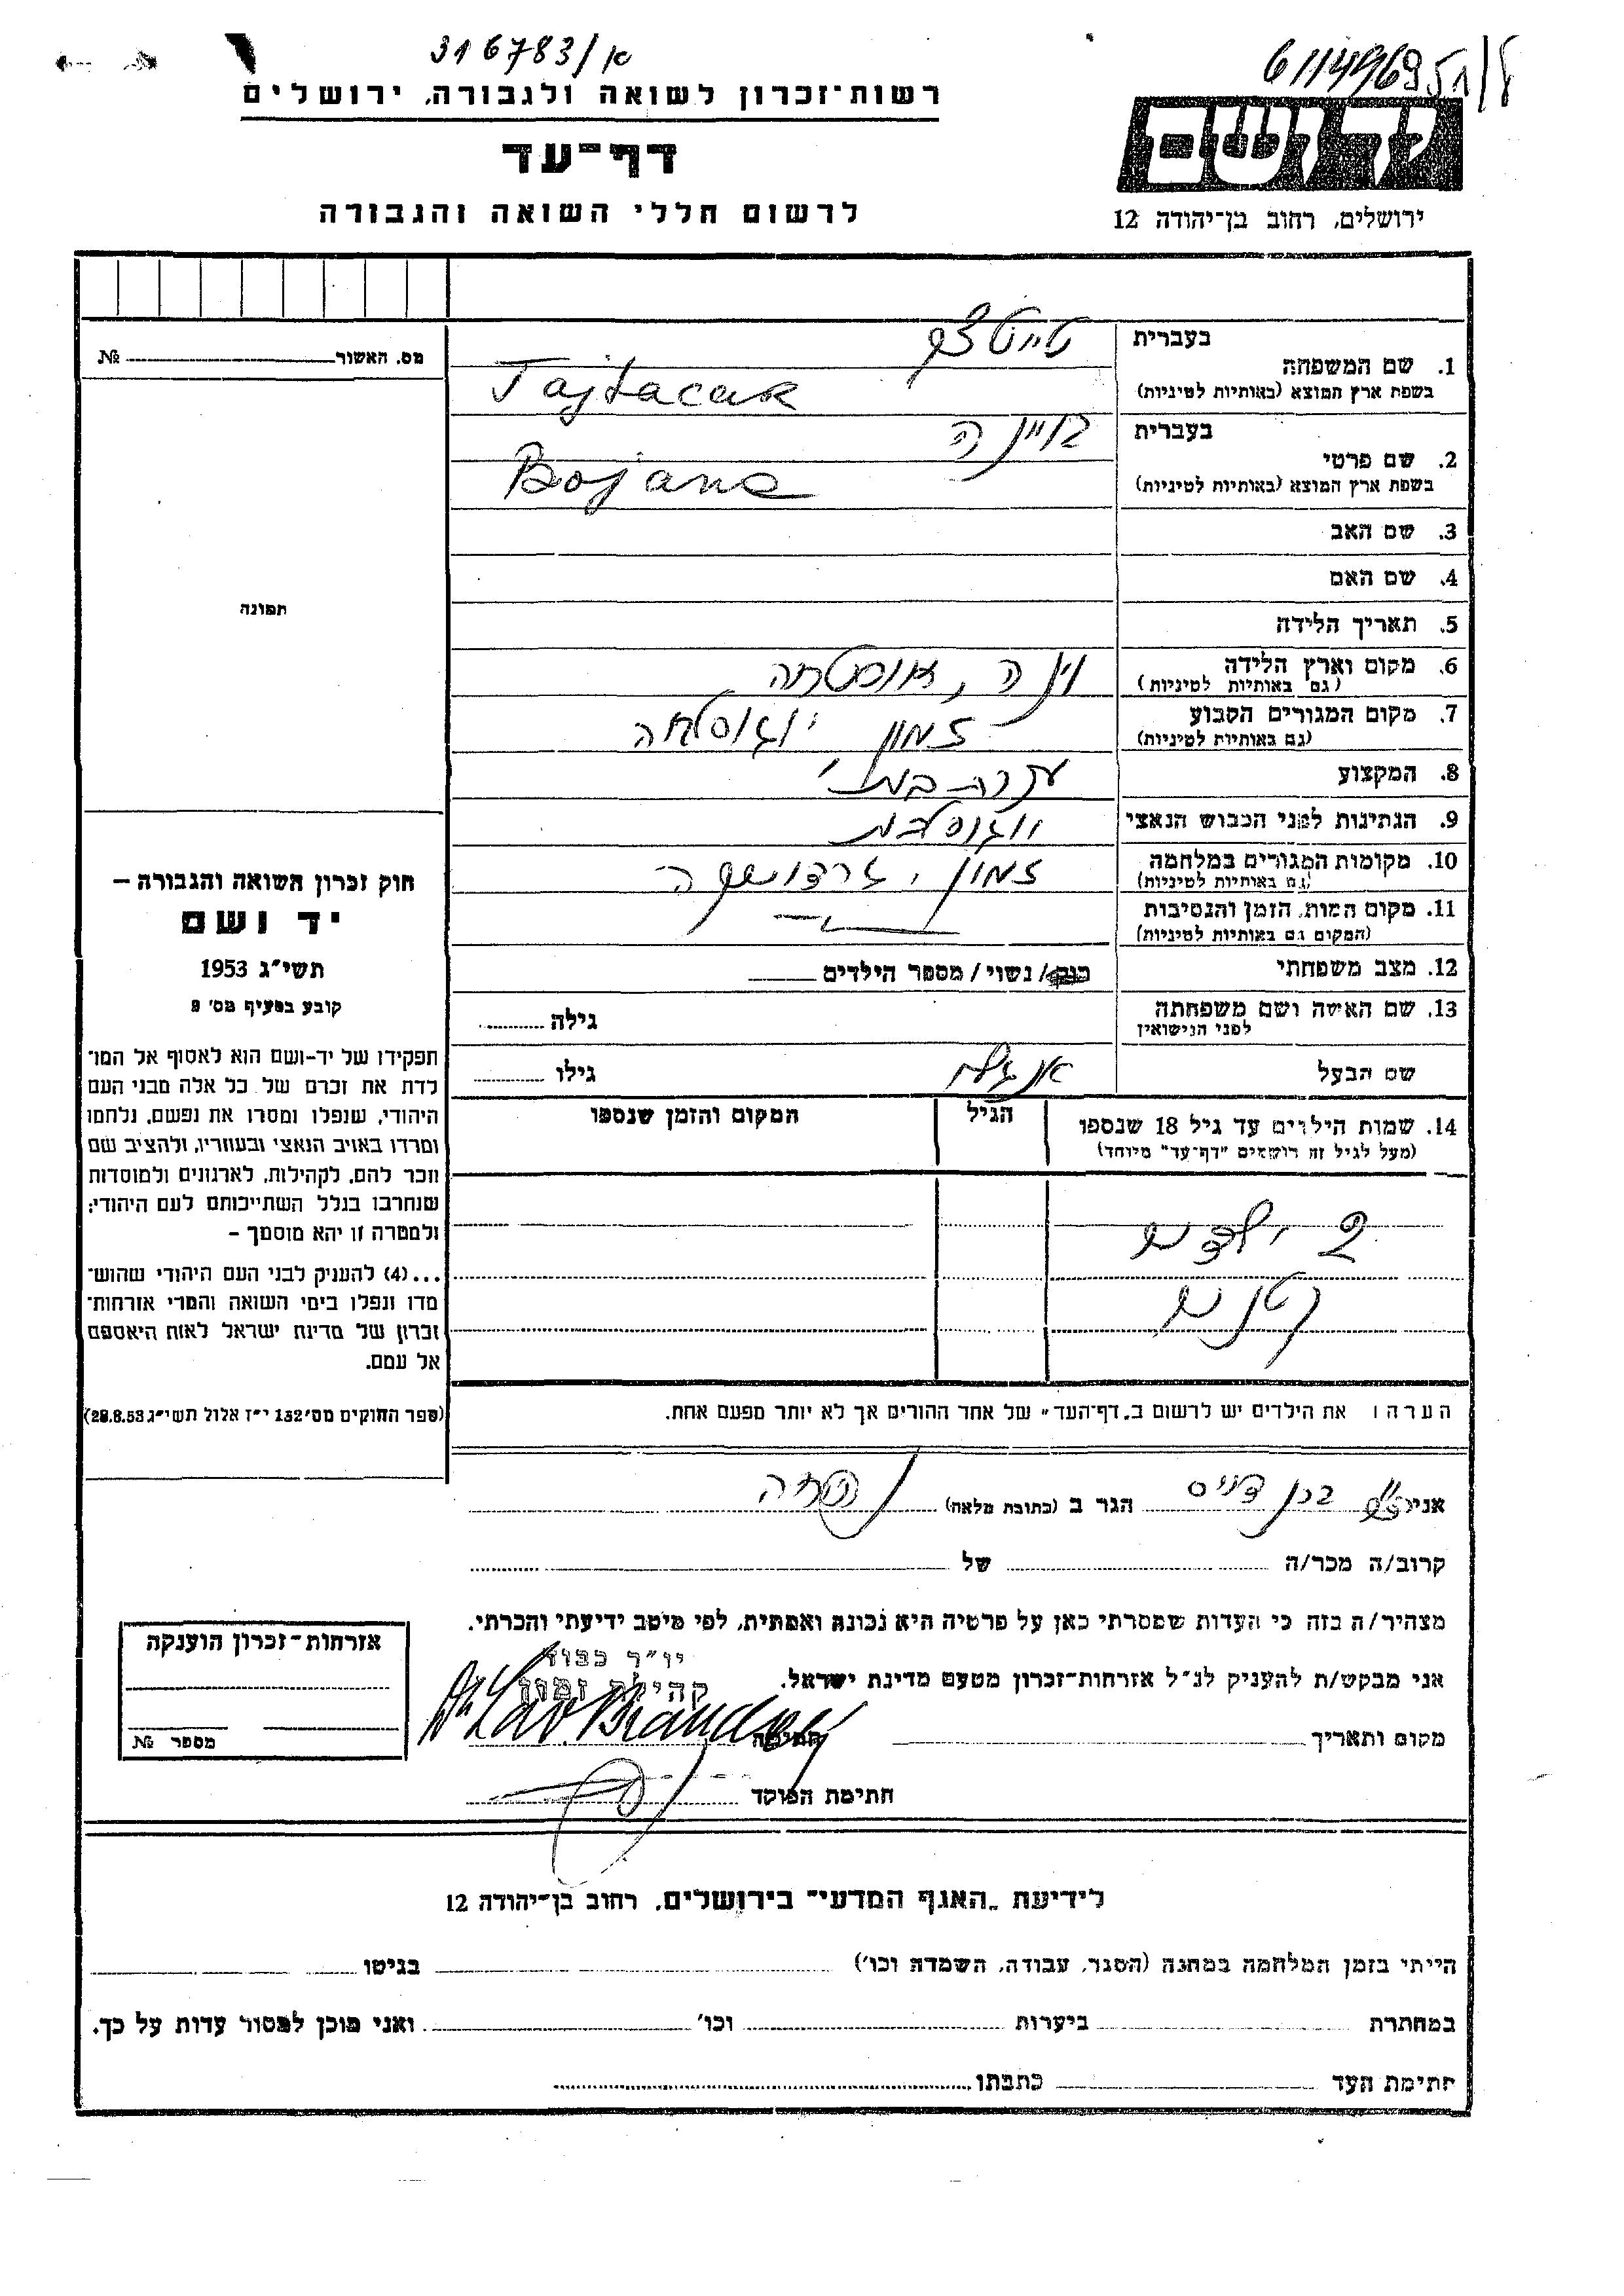 316783/א
6114969 51/8
רשות־זכרון לשואה ולגבורה, ירושלים
דף־עד
לרשום חללי השואה והגבורה
ידושם
ירושלים, רחוב בן־יהודה 12
מס. האשור № 
תמונה
1. שם המשפחה
בעברית
בשפת ארץ המוצא (באותיות לטיניות)
Tajtacak
2. שם פרטי
בעברית בויינה
בשפת ארץ המוצא (באותיות לטיניות)
Bojana
3. שם האב
4. שם האם
5. תאריך הלידה
6. מקום וארץ הלידה וינה, אוסטריה
(גם באותיות לטיניות)
7. מקום המגורים הקבוע זמון יוגוסלביה
(גם באותיות לטיניות)
8. המקצוע עקרת בית
9. הנתינות לפני הכבוש הנאצי יוגוסלבית
10. מקומות המגורים במלחמה זמון,
(גם באותיות לטיניות)
11. מקום המות, הזמן והנסיבות
(המקום גם באותיות לטיניות)
12. מצב משפחתי רווק / נשוי / מספר הילדים
13. שם האישה ושם משפחתה גילה
לפני הנישואין
שם הבעל גילו
14. שמות הילדים עד גיל 18 שנספו הגיל המקום והזמן שנספו
(מעל לגיל זה רושמים "דף־עד" מיוחד)
2 ילדים
קטנים
הערה: את הילדים יש לרשום ב„דף־העד" של אחד ההורים אך לא יותר מפעם אחת.
חוק זכרון השואה והגבורה –
יד ושם
תשי"ג 1953
קובע בסעיף מס' 2
תפקידו של יד-ושם הוא לאסוף אל המו־
לדת את זכרם של כל אלה מבני העם
היהודי, שנפלו ומסרו את נפשם, נלחמו
ומרדו באויב הנאצי ובעוזריו, ולהציב שם
וזכר להם, לקהילות, לארגונים ולמוסדות
שנחרבו בגלל השתייכותם לעם היהודי;
ולמטרה זו יהא מוסמך –
...(4) להעניק לבני העם היהודי שהוש־
מדו ונפלו בימי השואה והמרי אזרחות־
זכרון של מדינת ישראל לאות היאספם
אל עמם.
(ספר החוקים מס' 132 י"ז אלול תשי"ג 28.8.53)
אני הגר ב (כתובת מלאה)
קרוב/ה מכר/ה של
מצהיר/ה בזה כי העדות שמסרתי כאן על פרטיה היא נכונה ואמתית, לפי מיטב ידיעתי והכרתי.
אני מבקש/ת להעניק לנ"ל אזרחות־זכרון מטעם מדינת ישראל.
יו"ר כבוד
קהילת זמון
מקום ותאריך חתימה
חתימת הפוקד
אזרחות־זכרון הוענקה
מספר №
לידיעת „האגף המדעי" בירושלים, רחוב בן־יהודה 12
הייתי בזמן המלחמה במחנה (הסגר, עבודה, השמדה וכו') בגיטו
במחתרת ביערות וכו' ואני מוכן למסור עדות על כך.
חתימת העד כתבתו